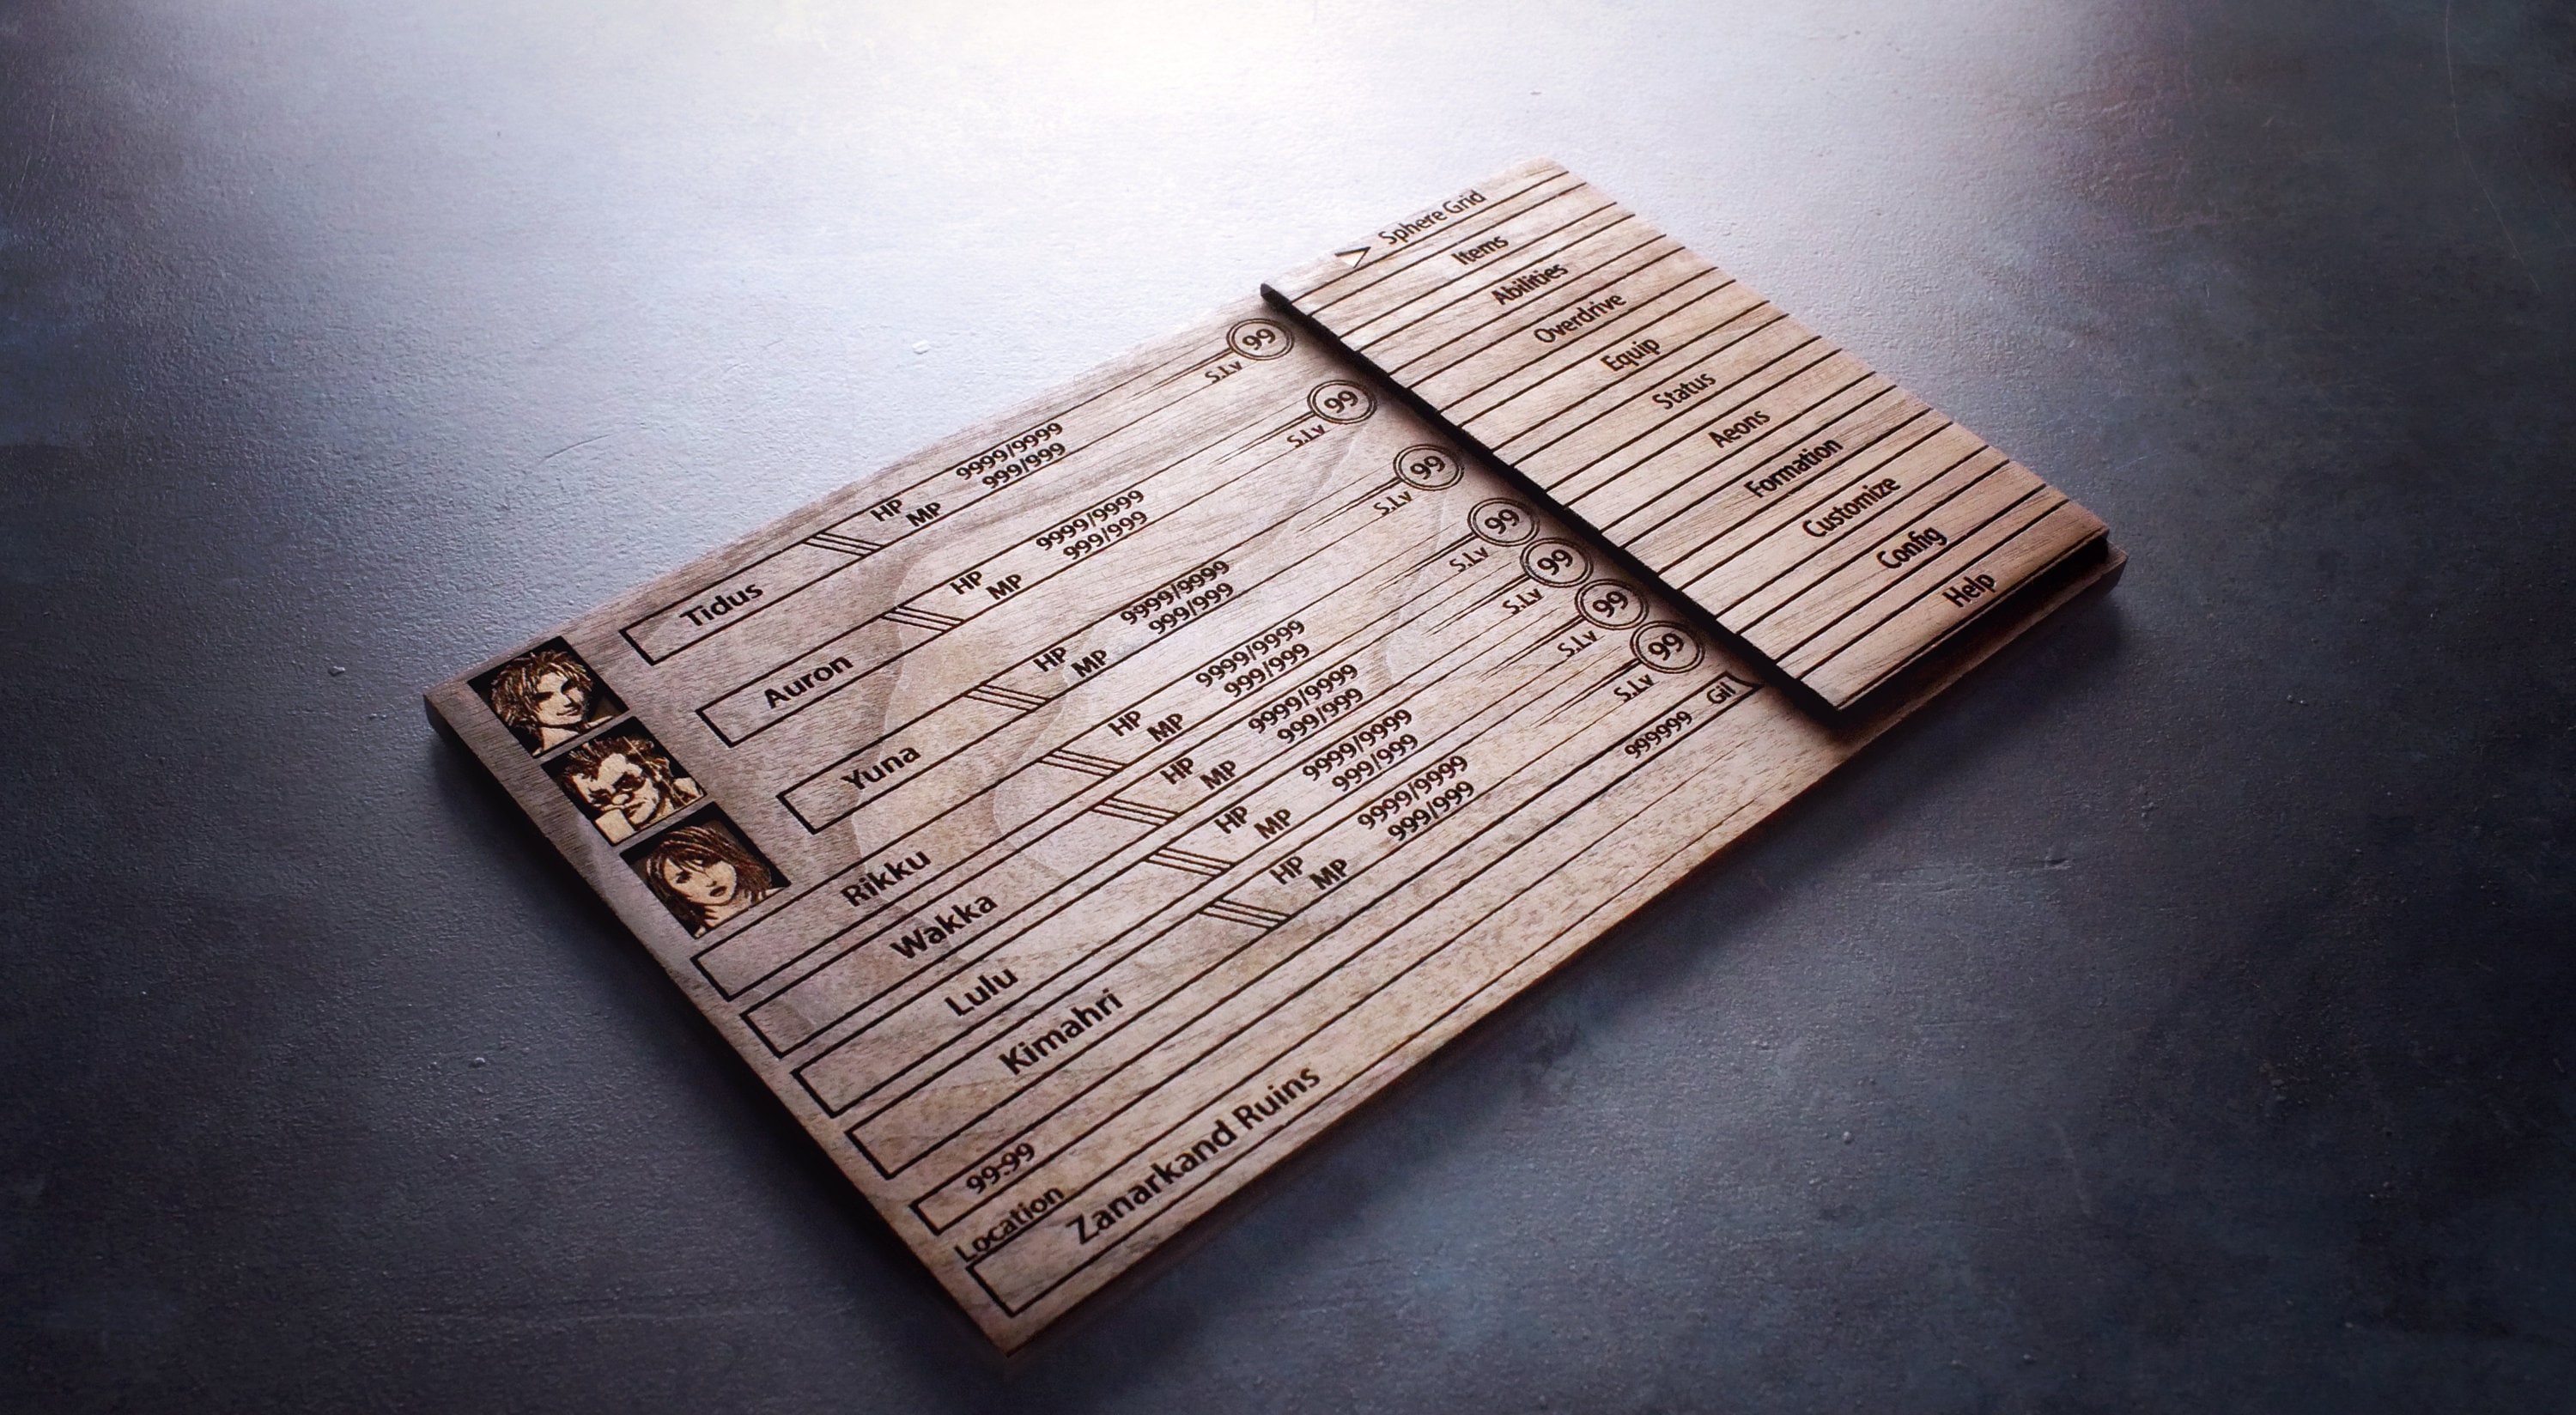 Sphere Grid
Items
Abilities
Overdrive
Equip
Status
Aeons
Formation
Customize
Config
Help
Tidus HP 9999/9999 99
MP 999/999 S.Lv
Auron HP 9999/9999 99
MP 999/999 S.Lv
Yuna HP 9999/9999 99
MP 999/999 S.Lv
Rikku HP 9999/9999 99
MP 999/999 S.Lv
Wakka HP 9999/9999 99
MP 999/999 S.Lv
Lulu HP 9999/9999 99
MP 999/999 S.Lv
Kimahri HP 9999/9999 99
MP 999/999 S.Lv
99:99 999999 Gil
Location
Zanarkand Ruins